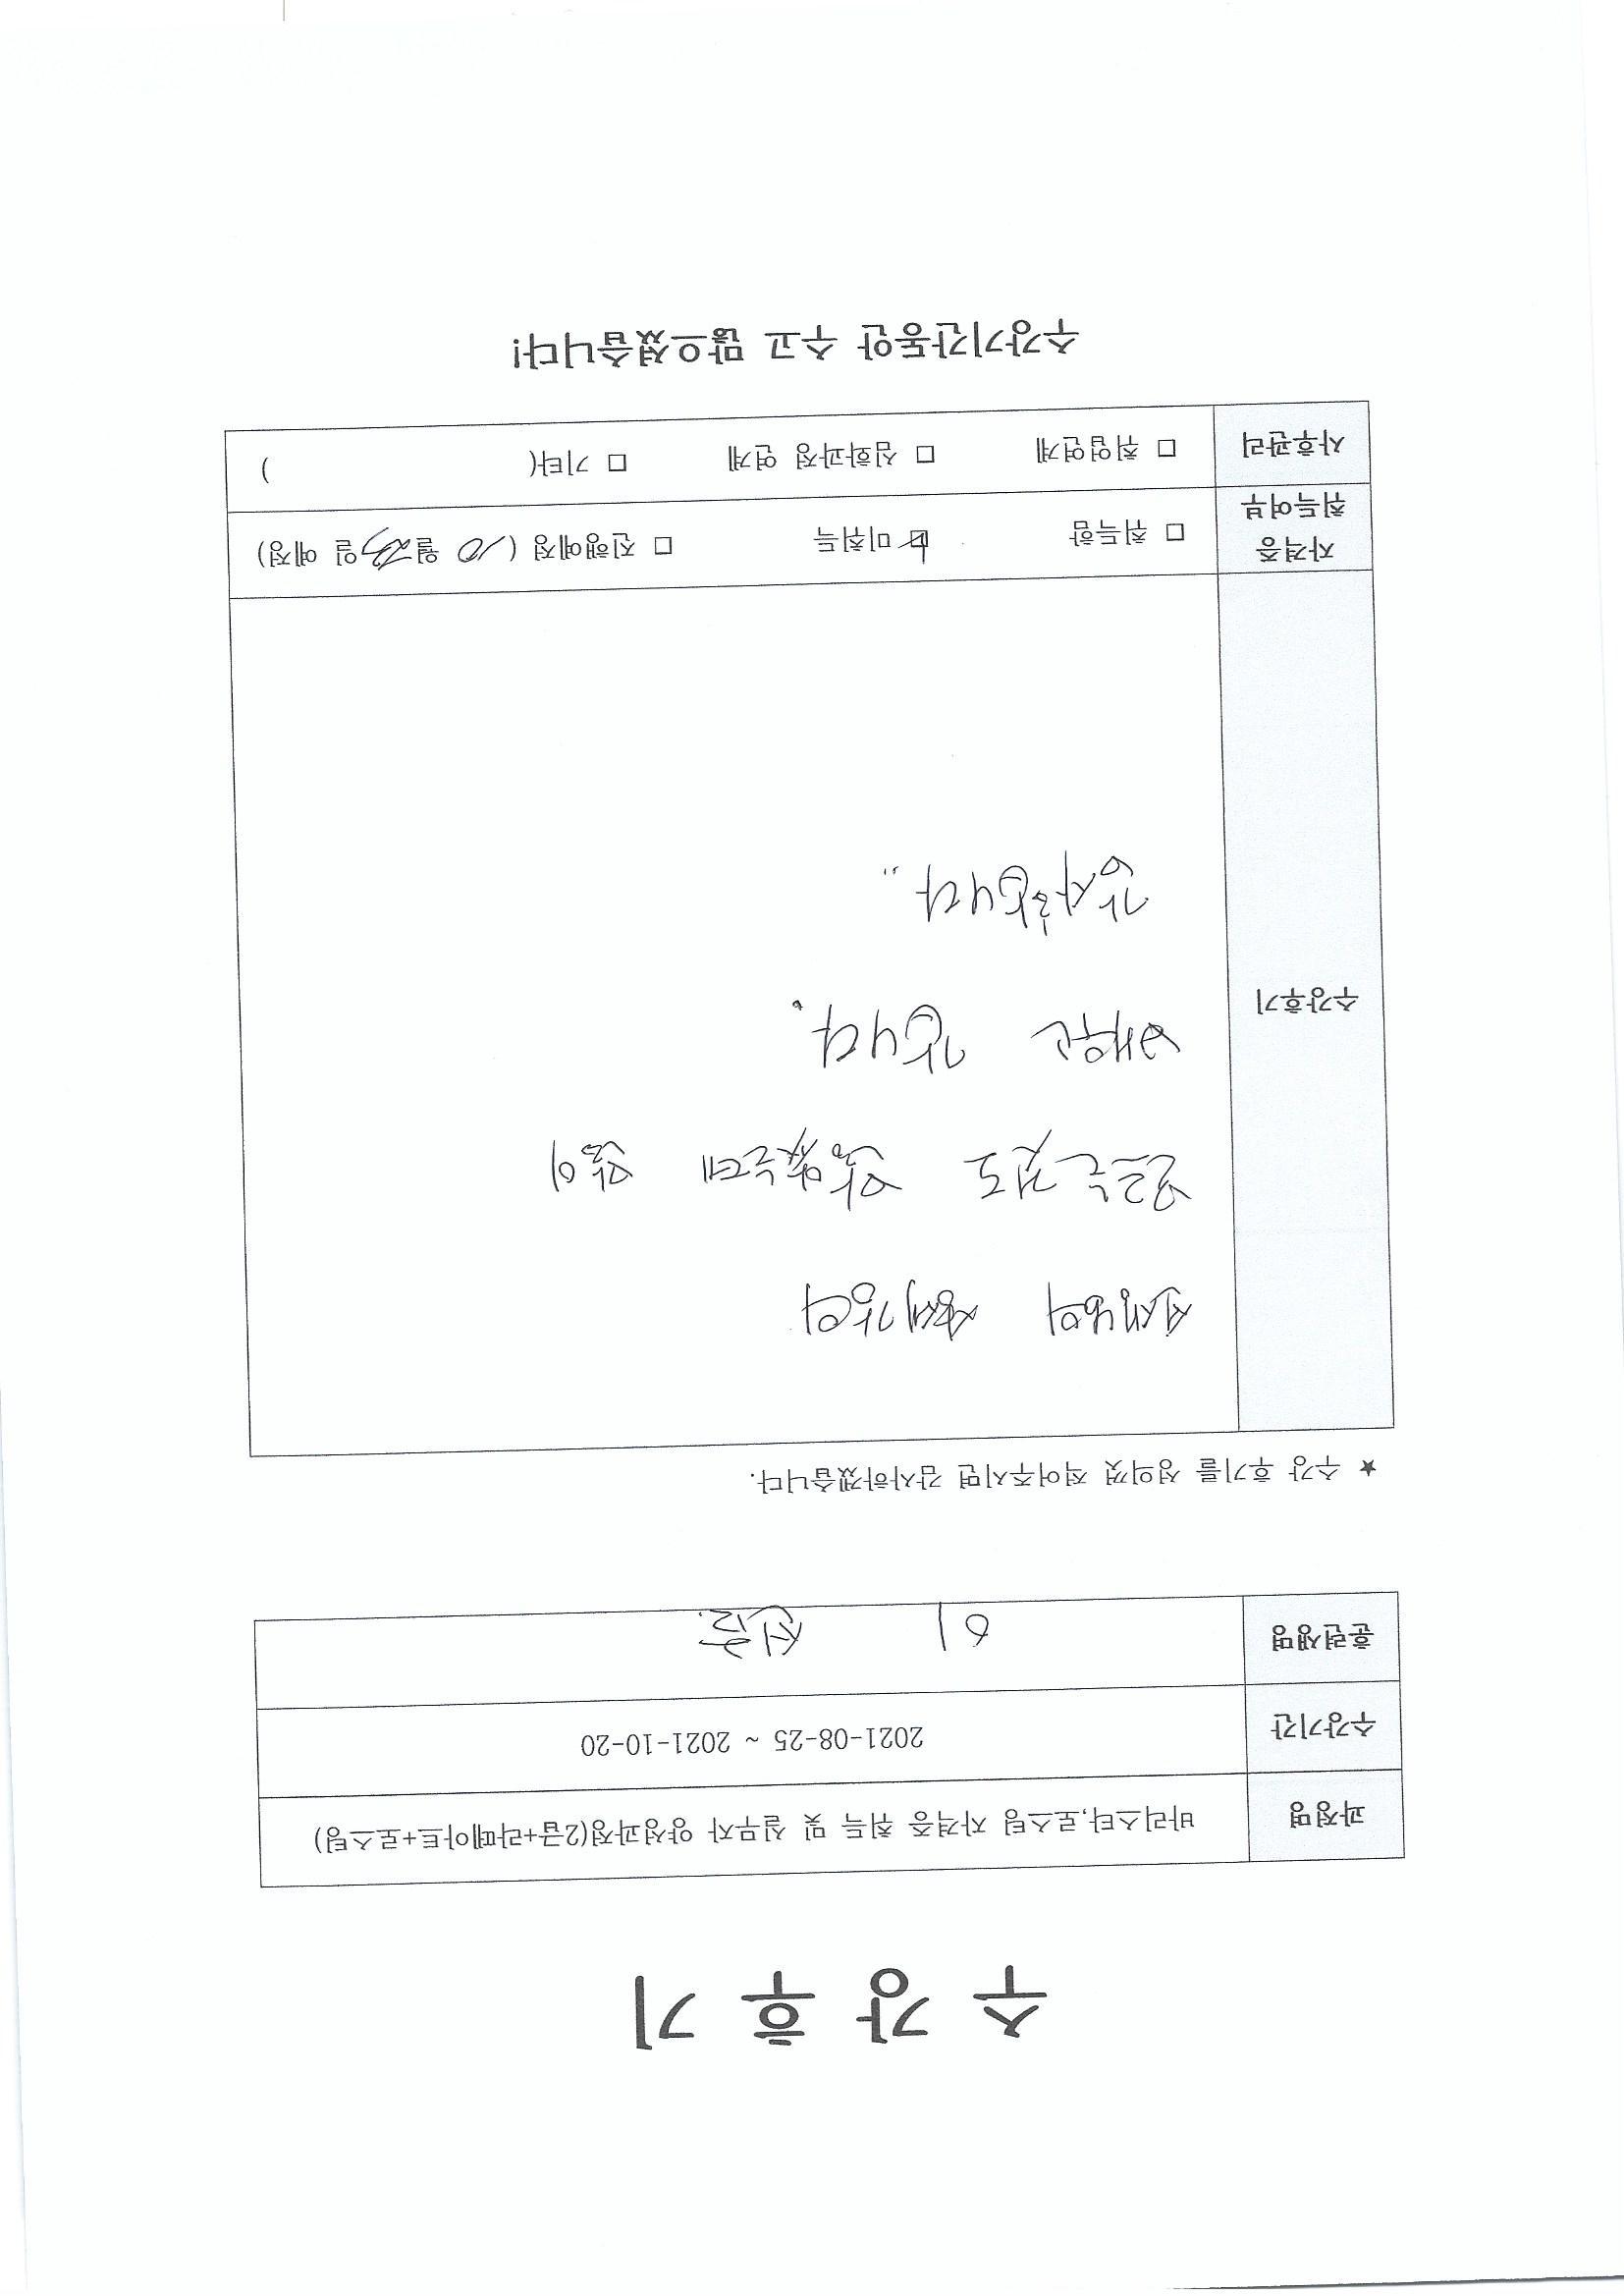 수 강 후 기
과정명 바리스타,로스팅 자격증 취득 및 실무자 양성과정(2급+라떼아트+로스팅)
수강기간 2021-08-25 ~ 2021-10-20
훈련생명 이
★ 수강 후기를 성의껏 적어주시면 감사하겠습니다.
수강후기
모르는 것도 많았는데 많이
배우고 갑니다.
감사합니다..
자격증 취득여부 □ 취득함 □ 미취득 □ 진행예정 ( 10 월 23 일 예정)
사후관리 □ 취업연계 □ 심화과정 연계 □ 기타( )
수강기간동안 수고 많으셨습니다!